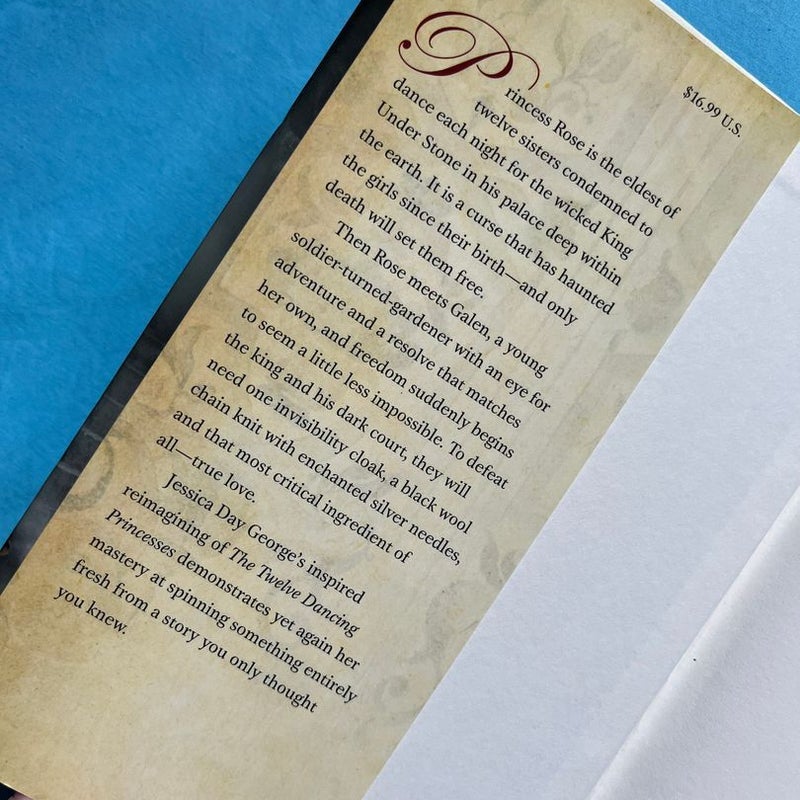 $16.99 U.S.
Princess Rose is the eldest of
twelve sisters condemned to
dance each night for the wicked King
Under Stone in his palace deep within
the earth. It is a curse that has haunted
the girls since their birth—and only
death will set them free.
Then Rose meets Galen, a young
soldier-turned-gardener with an eye for
adventure and a resolve that matches
her own, and freedom suddenly begins
to seem a little less impossible. To defeat
the king and his dark court, they will
need one invisibility cloak, a black wool
chain knit with enchanted silver needles,
and that most critical ingredient of
all—true love.
Jessica Day George's inspired
reimagining of The Twelve Dancing
Princesses demonstrates yet again her
mastery at spinning something entirely
fresh from a story you only thought
you knew.